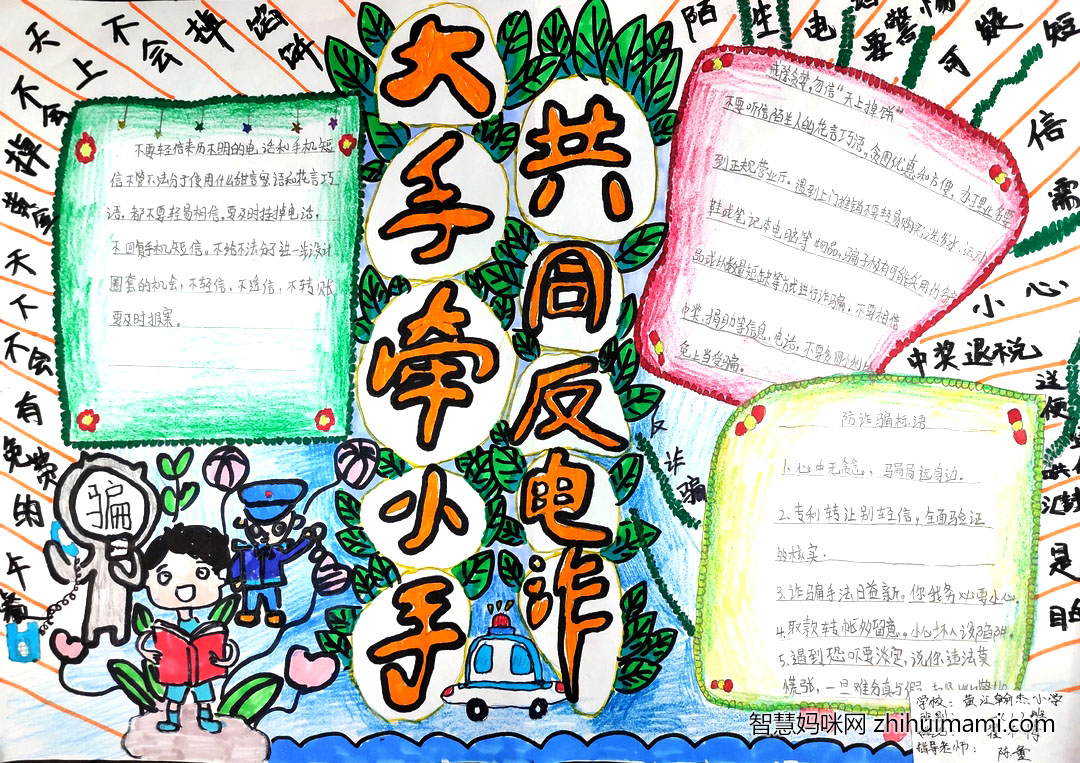 天不会掉馅饼
不会上
掉
天下不会有免费的午餐
陌生电话要警惕
可疑短信需小心
中奖退税送便
是
大手牵小手
共同反电诈
反诈骗
骗
不要轻信来历不明的电话和手机短
信不管不法分子使用什么甜言蜜语和花言巧
语,都不要轻易相信,要及时挂掉电话,
不回复手机短信。不给不法分子进一步设计
圈套的机会,不轻信,不透信,不转账
要及时报案。
戒除贪梦,勿信“天上掉饼”
不要听信陌生人的花言巧语,贪图优惠和方便,办理业务要
到正规营业厅,遇到上门推销不要轻易购买洗发水、运动
鞋或笔记本电脑等物品,骗子极有可能采用伪劣产
品或以数量短缺等方式进行诈骗。不要相信
中奖、捐助等信息、电话,不要贪图小利以
免上当受骗。
防诈骗标语
1.心中无贪念,骗局远身边。
2.专利转让别轻信,全面验证
的核实。
3.诈骗手法日益新,你我务必要小心。
4.取款转帐多留意,小心坏人设陷阱。
5.遇到恐吓要淡定,说你违法莫
慌张,一旦难分真与假,
学校:黄江翰杰小学
指导老师:陈
智慧妈咪网 zhihuimami.com